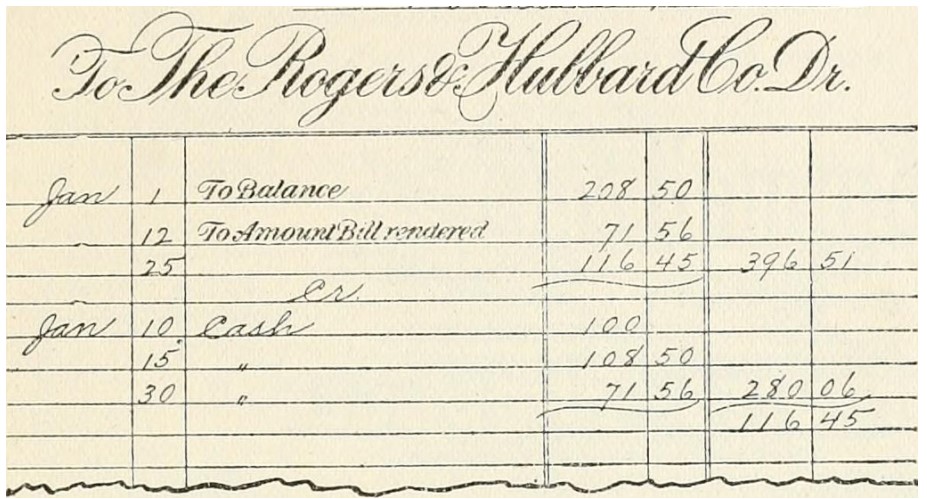 To The Rogers & Hubbard Co. Dr.
Jan 1 To Balance 208 50
12 To Amount Bill rendered 71 56
25 116 45 396 51
Cr.
Jan 10 Cash 100
15 " 108 50
30 " 71 56 280 06
116 45